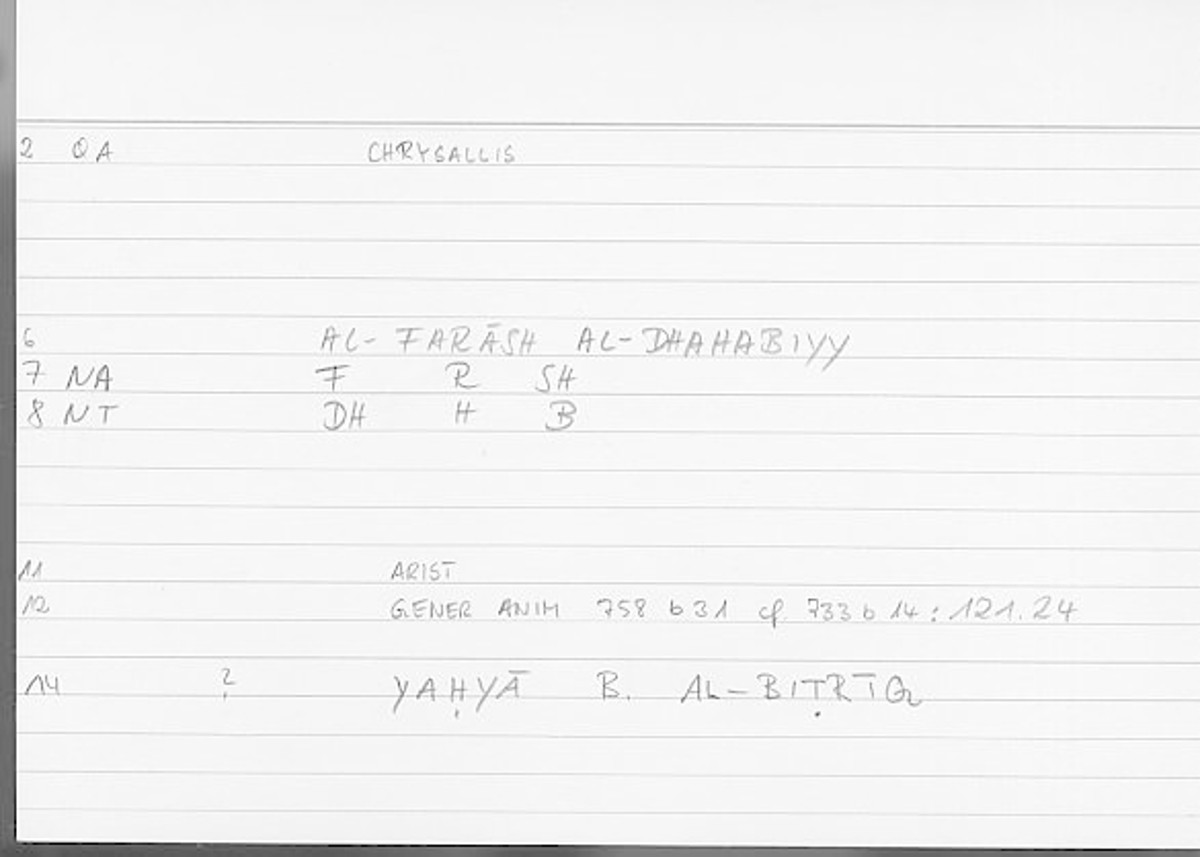 2 QA CHRYSALLIS
6 AL-FARĀSH AL-DHAHABIYY
7 NA F R SH
8 NT DH H B
11 ARIST
12 GENER ANIM 758 b 31 cf 733 b 14 : 121.24
14 ? YAḤYĀ B. AL-BIṬRĪQ